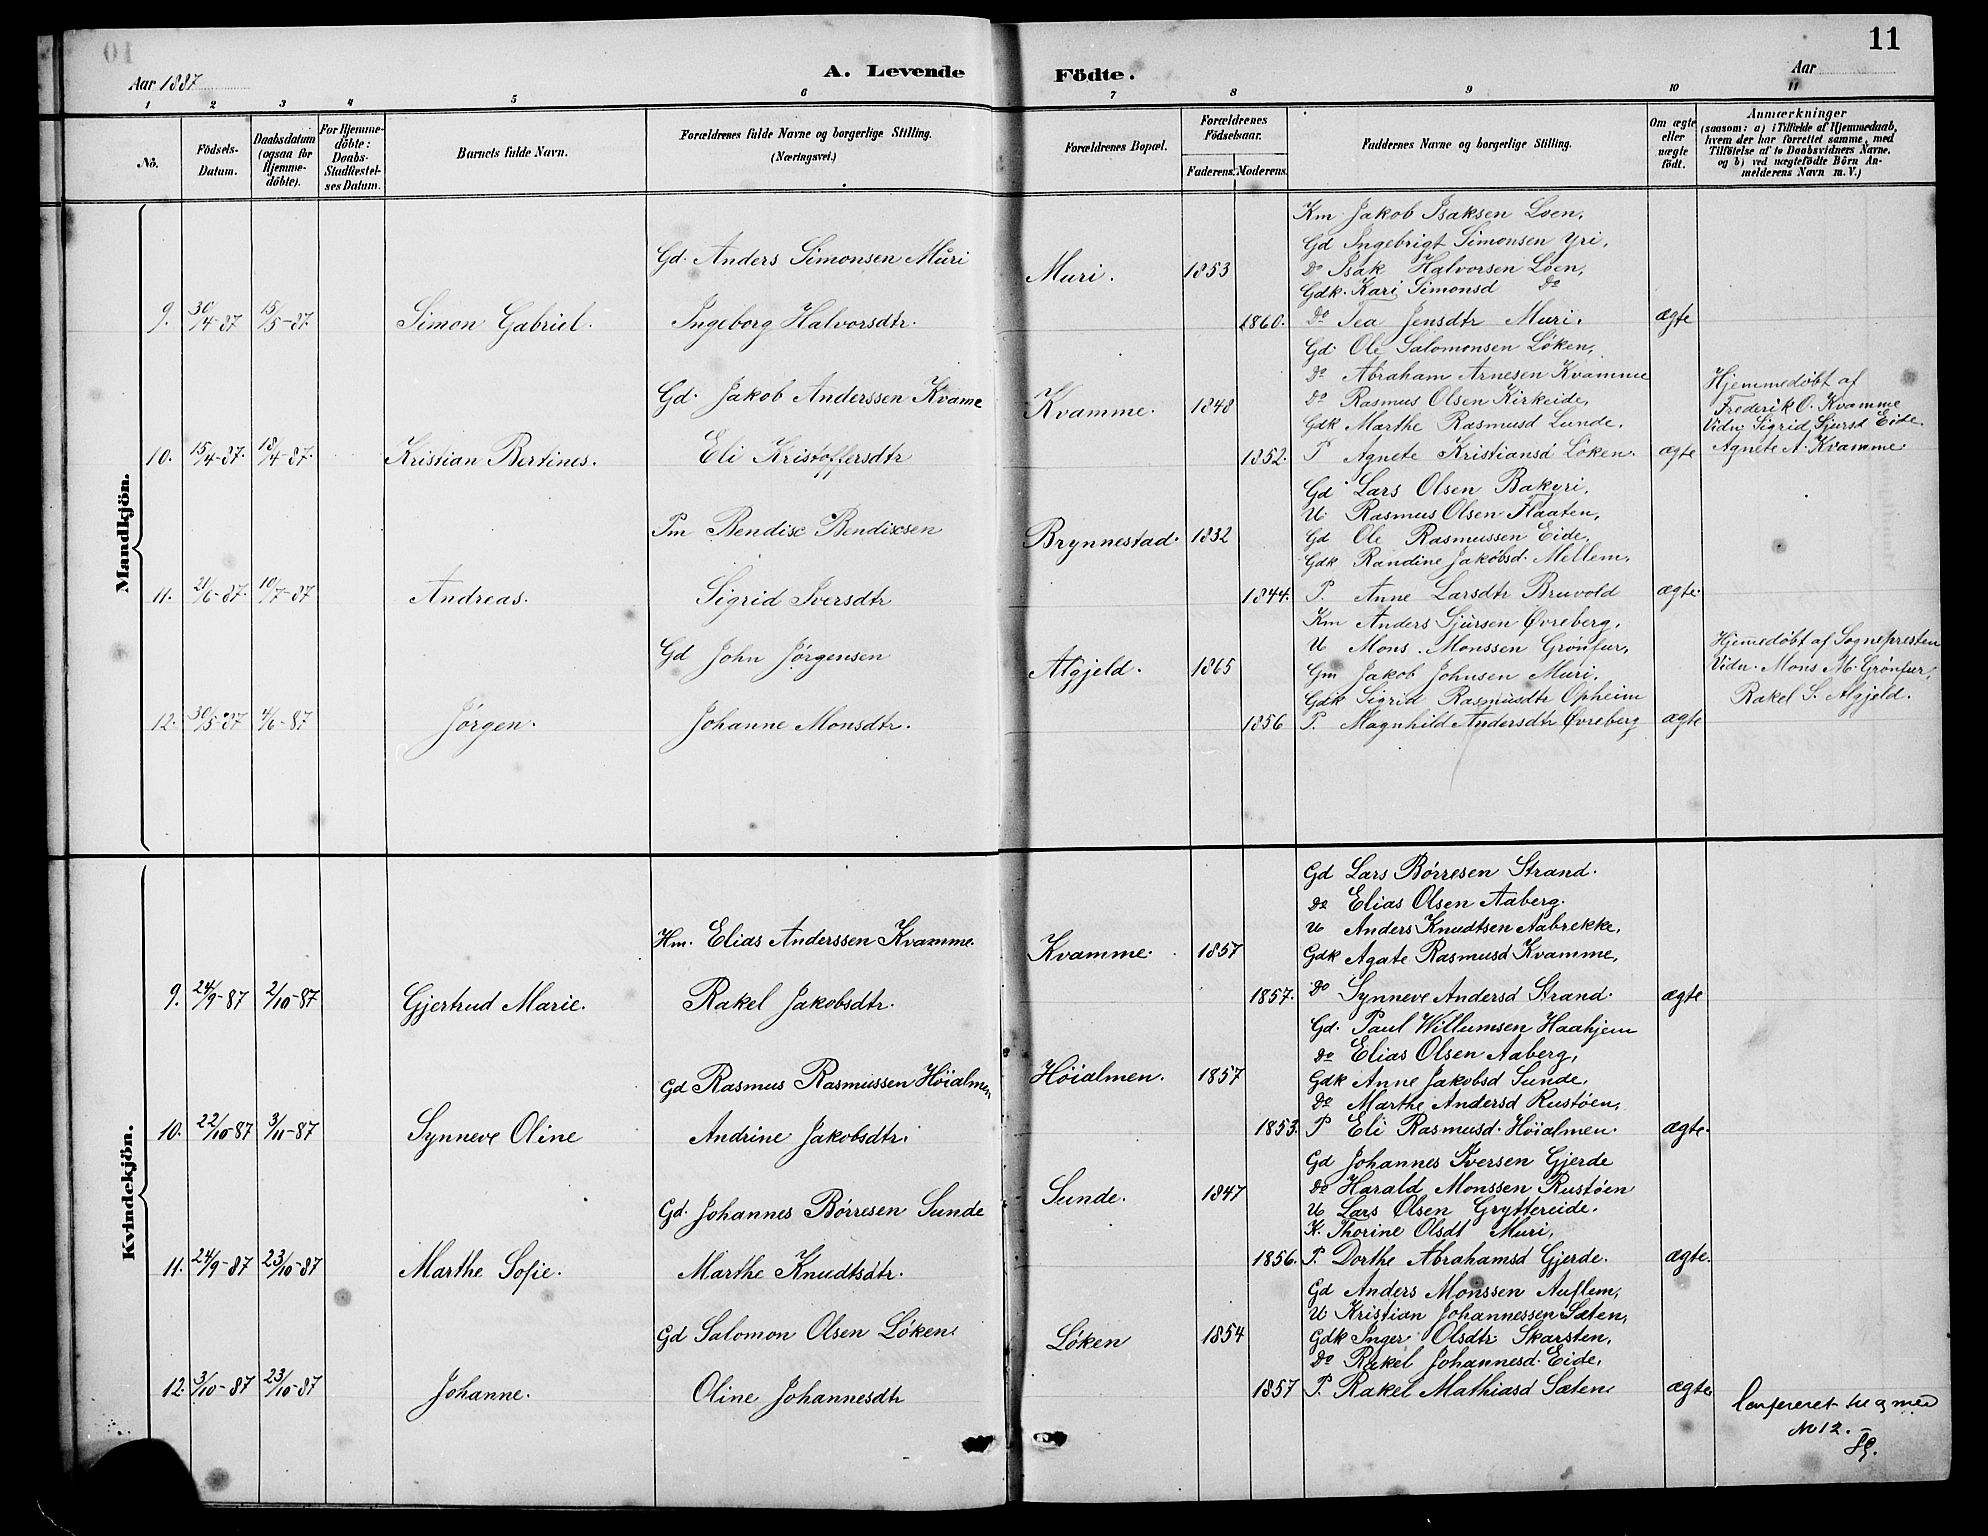 11
Aar 1887
A. Levende Födte.
Aar
1 2 3 4 5 6 7 8 9 10 11
No.
Födsels-Datum.
Daabsdatum (ogsaa for Hjemme-döbte).
For Hjemme-döbte: Daabs-Stadfæstel-ses Datum.
Barnets fulde Navn.
Forældrenes fulde Navne og borgerlige Stilling. (Næringsvei.)
Forældrenes Bopæl.
Forældrenes Födselsaar.
Faderens. Moderens.
Faddernes Navne og borgerlige Stilling.
Om ægte eller uægte födt.
Anmærkninger
(saasom: a) i Tilfælde af Hjemmedaab, hvem der har forrettet samme, med Tilföielse af to Daabsvidners Navne, og b) ved uægtefödte Börn An-melderens Navn m. V.)
Mandkjön.
Km Jakob Isaksen Loen,
Gd Ingebrigt Simonsen Yri,
Gd. Anders Simonsen Muri
Muri. 1853
Do Isak Halvorsen Loen,
Gdk. Kari Simonsd Do
9. 30/4-87 15/5-87. Simon Gabriel. Ingeborg Halvorsdtr. 1860. Do Tea Jensdtr Muri. ægte
Gd. Ole Salomonsen Löken,
Do Abraham Arnesen Kvamme
Gd. Jakob Anderssen Kvame
Kvamme. 1848 Do Rasmus Olsen Kirkeide,
Gdk Marthe Rasmusd Lunde.
Hjemmedöbt af
Frederik O. Kvamme
Vidn. Sigrid Sjursd Eide
Agnete A. Kvamme
10. 15/4-87. 18/4-87. Kristian Bertines. Eli Kristoffersdtr 1852. P Agnete Kristiansd Löken. ægte
Gd Lars Olsen Bakyri,
U Rasmus Olsen Flaaten,
Pm Bendix Bendixsen
Brynnestad. 1832 Gd Ole Rasmussen Eide,
Gdk Randine Jakobsd. Mellem,
11. 21/6-87. 10/7-87 Andreas. Sigrid Iversdtr 1844. P. Anne Larsdtr Bruvold ægte.
Km Anders Sjursen Øvreberg,
U Mons Monssen Grönfur,
Gd John Jörgensen
Algjeld. 1865 Gm Jakob Johnsen Muri,
Gdk Sigrid Rasmusdtr Opheim
Hjemedöbt af Sognepresten
Vidn. Mons M. Grönfur,
Rakel S. Algjeld.
12. 30/5-87 4/6-87 Jörgen. Johanne Monsdtr. 1856 P. Magnhild Andersdtr Øvreberg ægte
Kvindekjön.
Gd Lars Börresen Strand.
Do Elias Olsen Aaberg.
U Anders Knudtsen Aabrekke,
Hm. Elias Anderssen Kvamme.
Kvamme. 1857 Gdk Agate Rasmusd Kvamme,
9. 24/9-87 2/10-87 Gjertrud Marie. Rakel Jakobsdtr. 1857. Do Synneve Andersd Strand. ægte
Gd. Paul Willumsen Haahjem
Do Elias Olsen Aaberg,
Gd Rasmus Rasmussen Höialmen
Höialmen. 1857 Gdk Anne Jakobsd Sunde,
Do Marthe Andersd Rustöen,
10. 22/10-87 3/11-87 Synneve Oline Andrine Jakobsdtr. 1853. P Eli Rasmusd. Höialmen. ægte.
Gd Johannes Iversen Gjerde
Do Harald Monssen Rustöen
Gd. Johannes Börresen Sunde
Sunde. 1847 U Lars Olsen Gryttereide.
K. Thorine Olsdt Muri,
11. 24/9-87 23/10-87 Marthe Sofie. Marthe Knudtsdtr. 1856. P. Dorthe Abrahamsd Gjerde. ægte.
Gd Anders Monssen Auflem,
U Kristian Johannessen Sæten,
Gd Salomon Olsen Löken
Löken 1854 Gdk Inger Olsdtr. Skarsten,
Do Rakel Johannesd. Eide,
12. 3/10-87 23/10-87 Johanne. Oline Johannesdtr 1857 P. Rakel Mathiasd Sæten ægte
Confereret til og med
No 12.